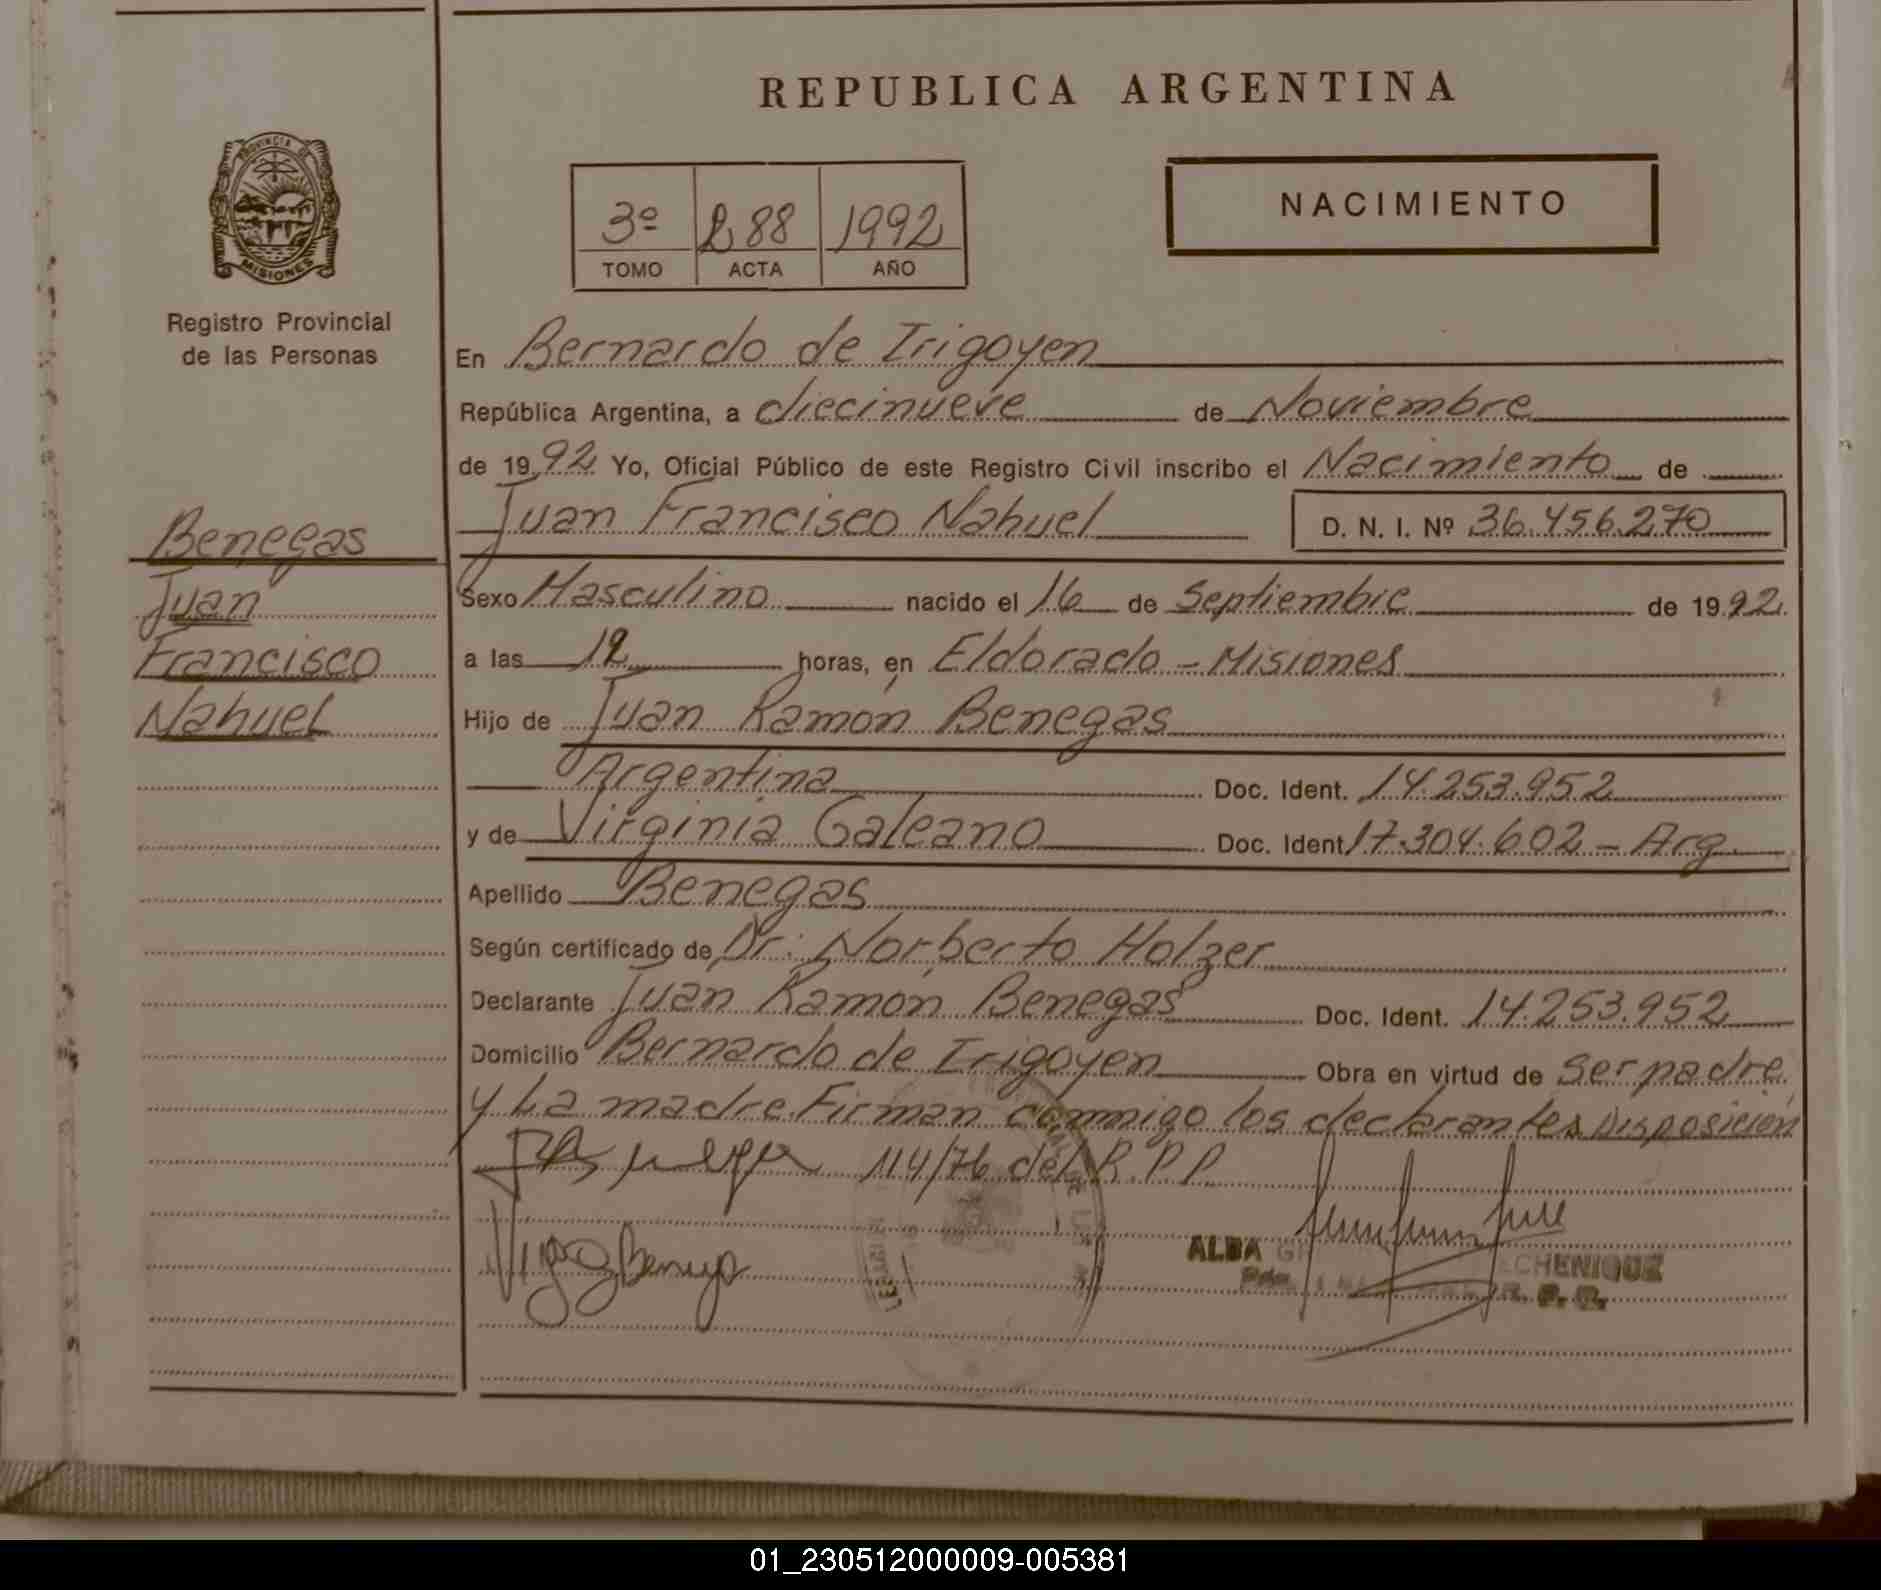 REPUBLICA ARGENTINA
PROVINCIA DE
MISIONES
Registro Provincial
de las Personas
3º 288 1992
TOMO ACTA AÑO
NACIMIENTO
En Bernardo de Irigoyen
República Argentina, a diecinueve de Noviembre
de 1992 Yo, Oficial Público de este Registro Civil inscribo el Nacimiento de
Juan Francisco Nahuel D. N. I. Nº 36.456.270
Benegas
Juan
Francisco
Nahuel
Sexo Masculino nacido el 16 de Septiembre de 1992
a las 12 horas, en Eldorado - Misiones
Hijo de Juan Ramón Benegas
Argentina Doc. Ident. 14.253.952
y de Virginia Galeano Doc. Ident 17.304.602 - Arg
Apellido Benegas
Según certificado de Dr. Norberto Holzer
Declarante Juan Ramón Benegas Doc. Ident. 14.253.952
Domicilio Bernardo de Irigoyen Obra en virtud de Ser padre
y La madre. Firman conmigo los declarantes Disposición
114/76 del R.P.P.
ALBA
01_230512000009-005381